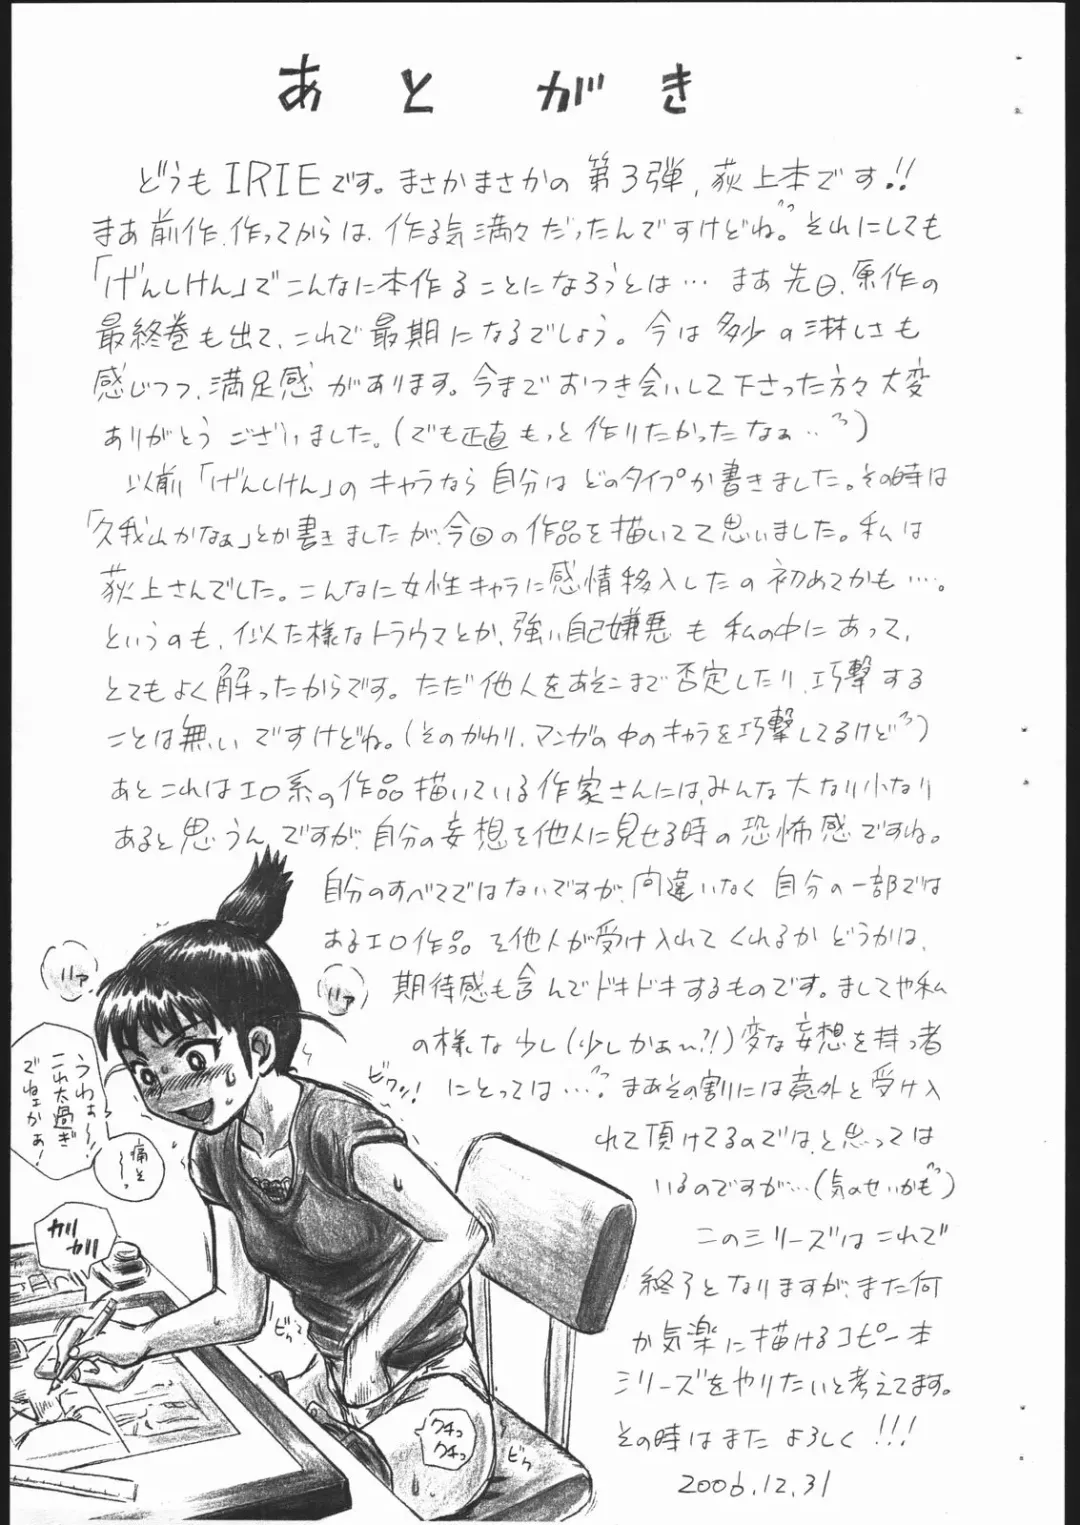 あとがき
どうもIRIEです。まさかまさかの第3弾,荻上本です!!
まあ前作、作ってからは、作る気満々だったんですけどね。それにしても
「げんしけん」でこんなに本作ることになろうとは…まあ先日、原作の
最終巻も出て、これで最期になるでしょう。今は多少の淋しさも
感じつつ、満足感があります。今までおつき会いして下さった方々大変
ありがとうございました。(でも正直もっと作りたかったなぁ…)
以前「げんしけん」のキャラなら自分はどのタイプか書きました。その時は
「久我山かなぁ」とか書きましたが、今回の作品を描いてて思いました。私は
荻上さんでした。こんなに女性キャラに感情移入したの初めてかも…。
というのも、似た様なトラウマとか、強い自己嫌悪も私の中にあって、
とてもよく解ったからです。ただ他人をあそこまで否定したり、巧撃する
ことは無いですけどね。(そのかわり、マンガの中のキャラを巧撃してるけど)
あとこれはエロ系の作品描いている作家さんには、みんな大なり小なり
あると思うんですが、自分の妄想を他人に見せる時の恐怖感ですね。
自分のすべてではないですが、間違いなく自分の一部では
あるエロ作品を他人が受け入れてくれるかどうかは、
期待感も含んでドキドキするものです。ましてや私
の様な少し(少しかぁ〜?!)変な妄想を持つ者
にとっては…。まあその割りには意外と受け入
れて頂けてるのでは、と思っては
いるのですが…(気のせいかも)
このシリーズはこれで
終了となりますが、また何
か気楽に描けるコピー本
シリーズをやりたいと考えてます。
その時はまたよろしく!!!
2006.12.31
ハァ
ハァ
うわぁ〜!
これ太過ぎ
でねェかぁ!
痛そ〜っ
ガリガリ
ビクッ!
ビクッ
クチュクチュ
ビクッ